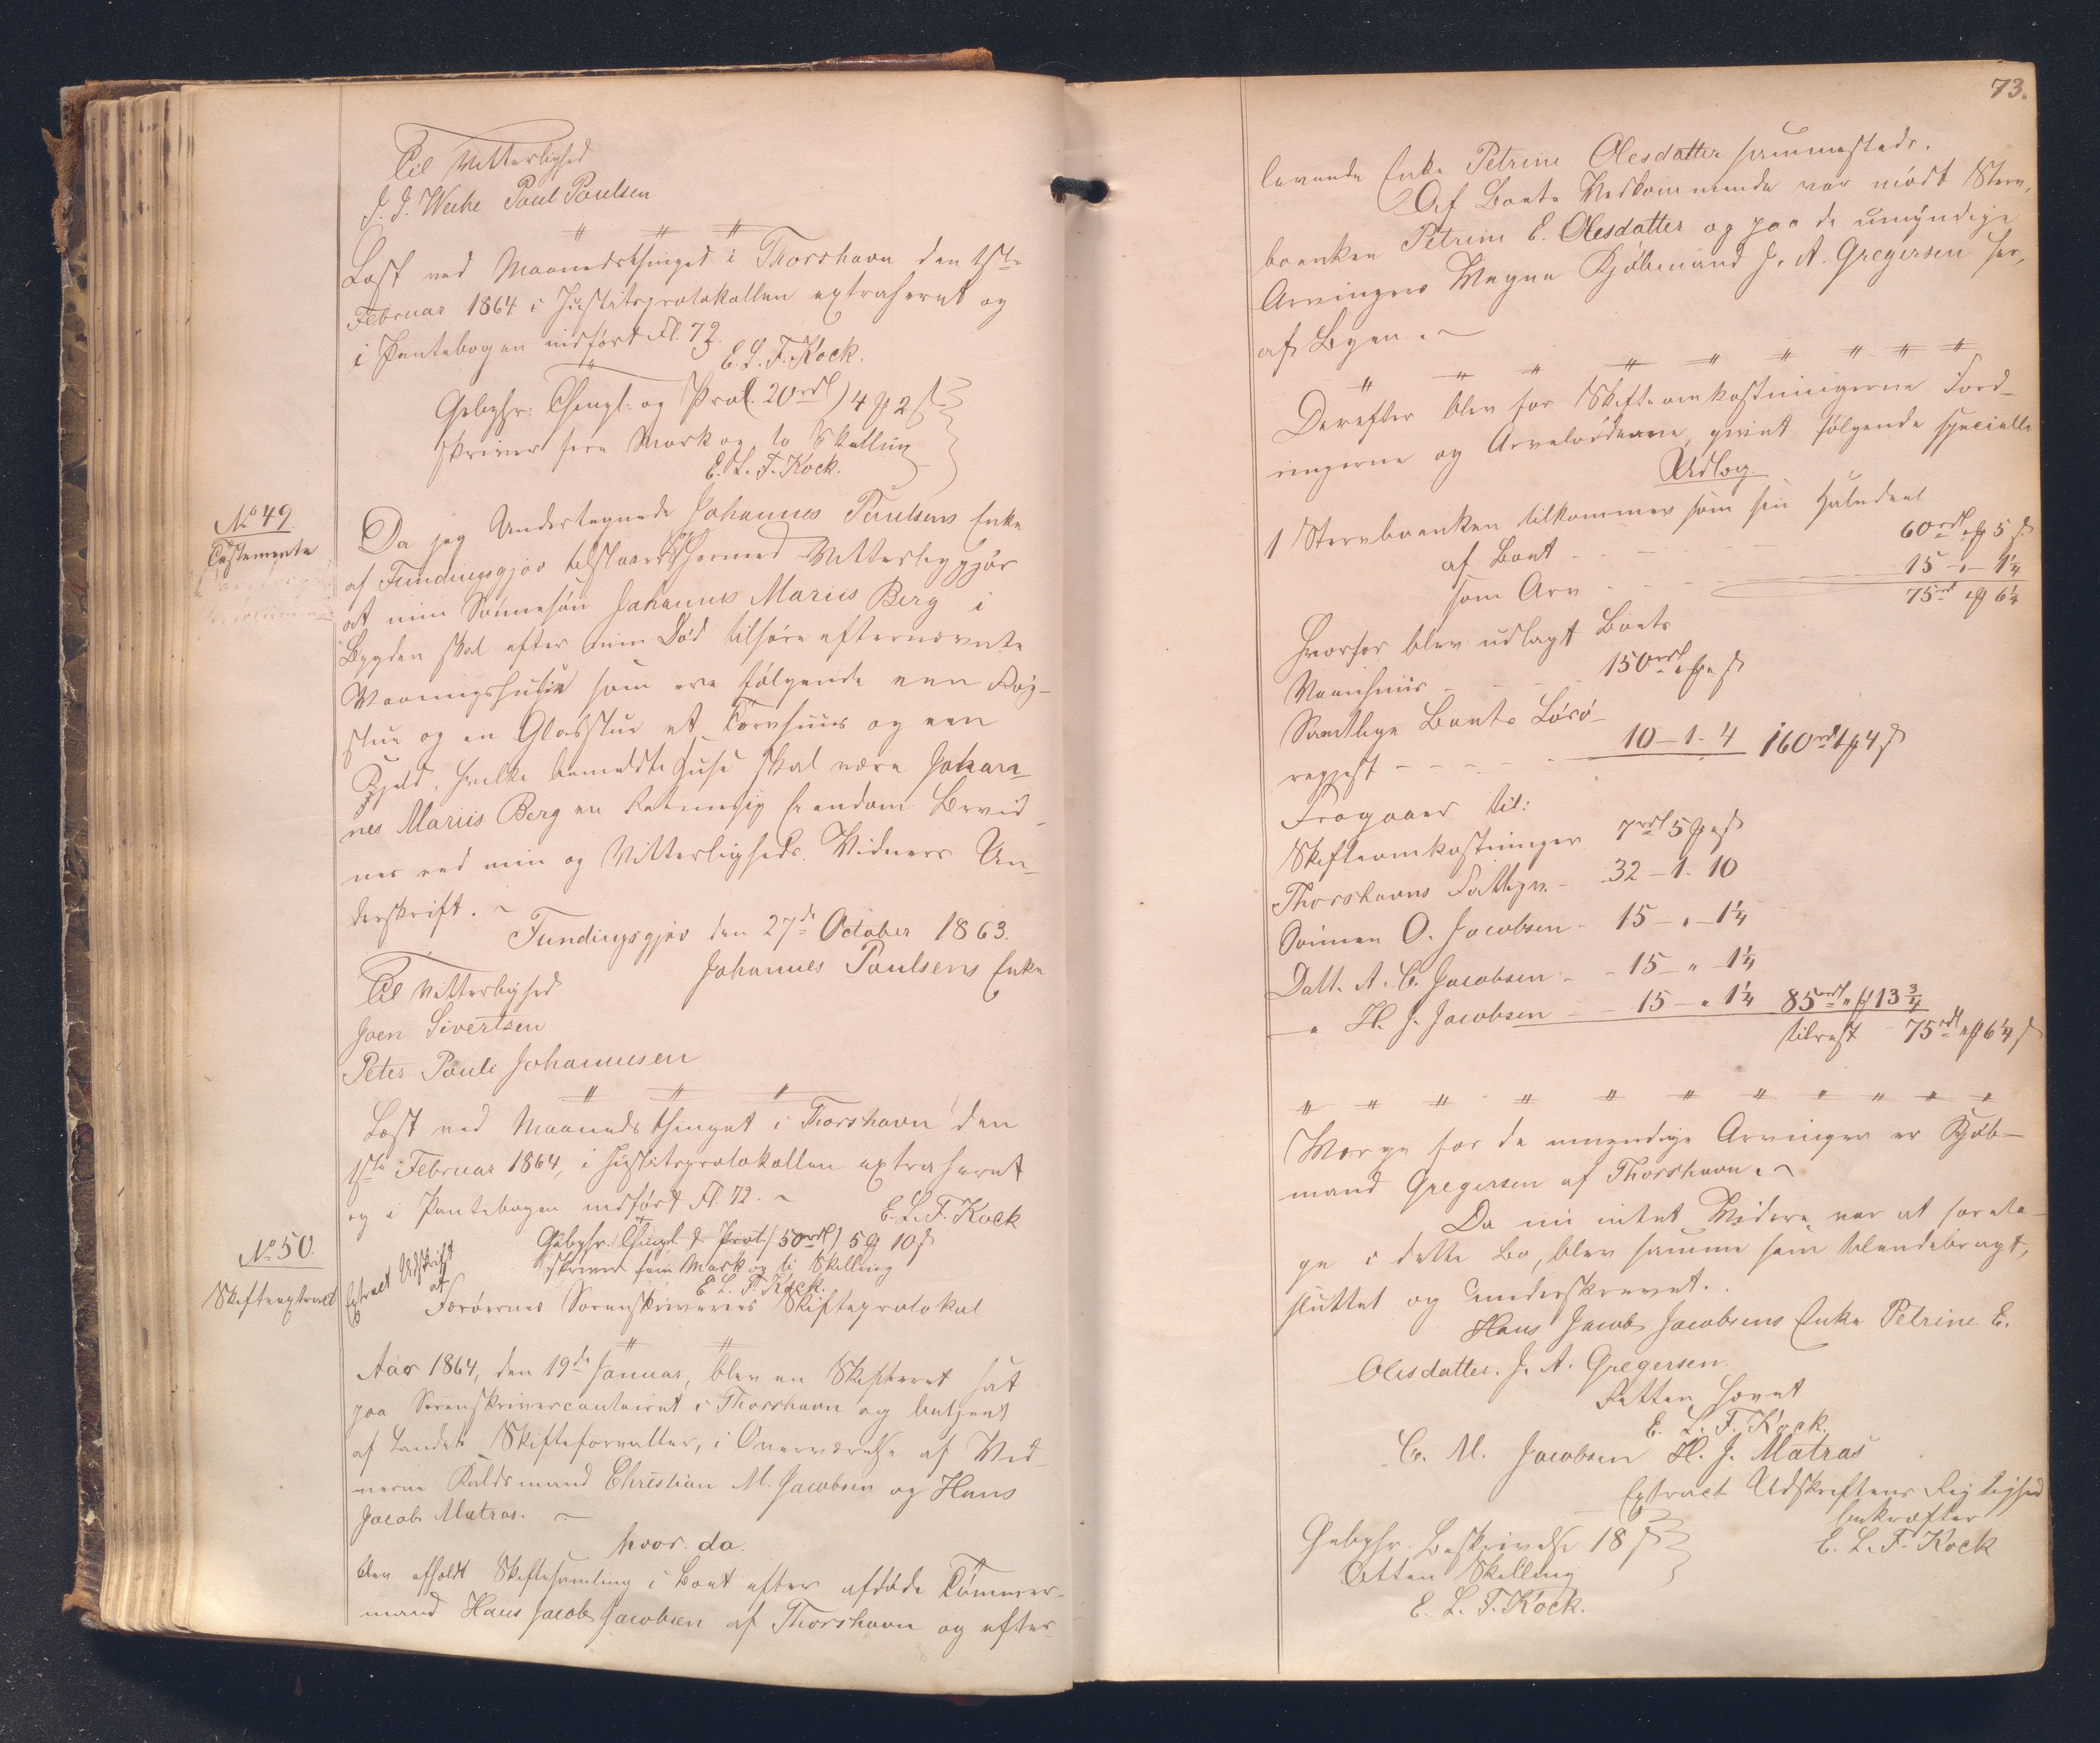 Til Vitterlighed
J. J. Weihe Poul Poulsen
" " "
Læst ved Maanedsthinget i Thorshavn den 1ste
Februar 1864 i Justitsprotokollen extraheret og
i Pantebogen indført Fl. 72.
E. L. F. Kock.
Gebyhr: Thingl: og Prot. 20rdl) 4 ℳ 2 ß
skriver fire Mark og to Skilling
E. L. F. Kock.
No 49.
Testamente
Da jeg Undertegnede Johannes Poulsens Enke
af Fundingsgjov tilstaaer og hermed Vitterliggjør
at min Sønnesøn Johannes Mariis Berg i
Bygden skal efter min Død tilhøre efternævnte
Vaaningshuse som ere følgende een Røg-
stue og en Glasstue et Tørvhuus og een
Kjeld, hvilke bemeldte Huse skal være Johan-
nes Mariis Berg en Retmæsig Eiendom Bevid-
nes ved min og Vitterligheds Vidners Un-
derskrift.
Fundingsgjov den 27de October 1863.
Johannes Poulsens Enke
Til Vitterlighed
Joen Sivertsen
Peter Poule Johannesen
" " "
Læst ved Maanedsthinget i Thorshavn den
1ste Februar 1864, i Justitsprotokollen extraheret
og i Pantebogen indført Fl. 72.
E. L. F. Kock
Gebyhr. Thingl. & Prot. (50rdl) 5 ℳ 10 ß
skriver fem Mark og ti Skilling
E. L. F. Kock.
No 50.
Skifteextract
Extract Udskrift
af
Færøernes Sorenskriveries Skifteprotokol
" "
Aar 1864, den 19de Januar, blev en Skifteret sat
paa Sorenskrivercontoiret i Thorshavn og betjent
af Landets Skifteforvalter, i Overværelse af Vid-
nerne Raldsmand Christian M. Jacobsen og Hans
Jacob Matras.
hvor da.
blev afholdt Skiftesamling i Boet efter afdøde Tømmer-
mand Hans Jacob Jacobsen af Thorshavn og efter-
73.
levende Enke Petrine Olesdatter sammesteds.
Af Boets Vedkommende var mødt Sterv-
boenken Petrine E. Olesdatter og paa de umyndige
Arvingers Vegne Kjøbmand J. A. Gregersen her
af Byen.
" " " " " " " "
Derefter blev for Skifteomkostningerne Ford-
ringerne og Arvelodderne, givet følgende specielle
Udlæg
1 Stervboenken tilkommer som sin Halvdeel
af Boet - - - - 60rdl " ℳ 5 ß
som Arv - - - - 15 - " - 1¼
75rd " ℳ 6¼
Hvorfor blev udlagt Boets
Vaanhuus - - - 150rdl " ℳ " ß
Samtlige Boets Løsø-
regjest - - - - 10 - 1 - 4 160rdl 1 ℳ 4 ß
Fragaaer til:
Skifteomkostninger 7rdl 5 ℳ " ß
Thorshavns Fattigv. - 32 - 1 - 10
Sønnen O. Jacobsen - 15 - " - 1¼
Datt. A. C. Jacobsen - - 15 - " - 1¼
- " H. J. Jacobsen - - 15 - " 1¼ 85rdl " ℳ 13¾
tilrest 75rdl " ℳ 6¼ ß
" " " " " " " " " " "
Værge for de umyndige Arvinger er Kjøb-
mand Gregersen af Thorshavn.
Da nu intet Videre var at foreta-
ge i dette Bo, blev samme som tilendebragt,
sluttet og underskrevet.
Hans Jacob Jacobsens Enke Petrine E.
Olesdatter. J. A. Gregersen.
Retten hævet
E. L. F. Kock.
C. M. Jacobsen H. J. Matras
Extract Udskriftens Rigtighed
bekræfter
E. L. F. Kock
Gebyhr. Beskrivelse 18 ß
Atten Skilling
E. L. F. Kock.